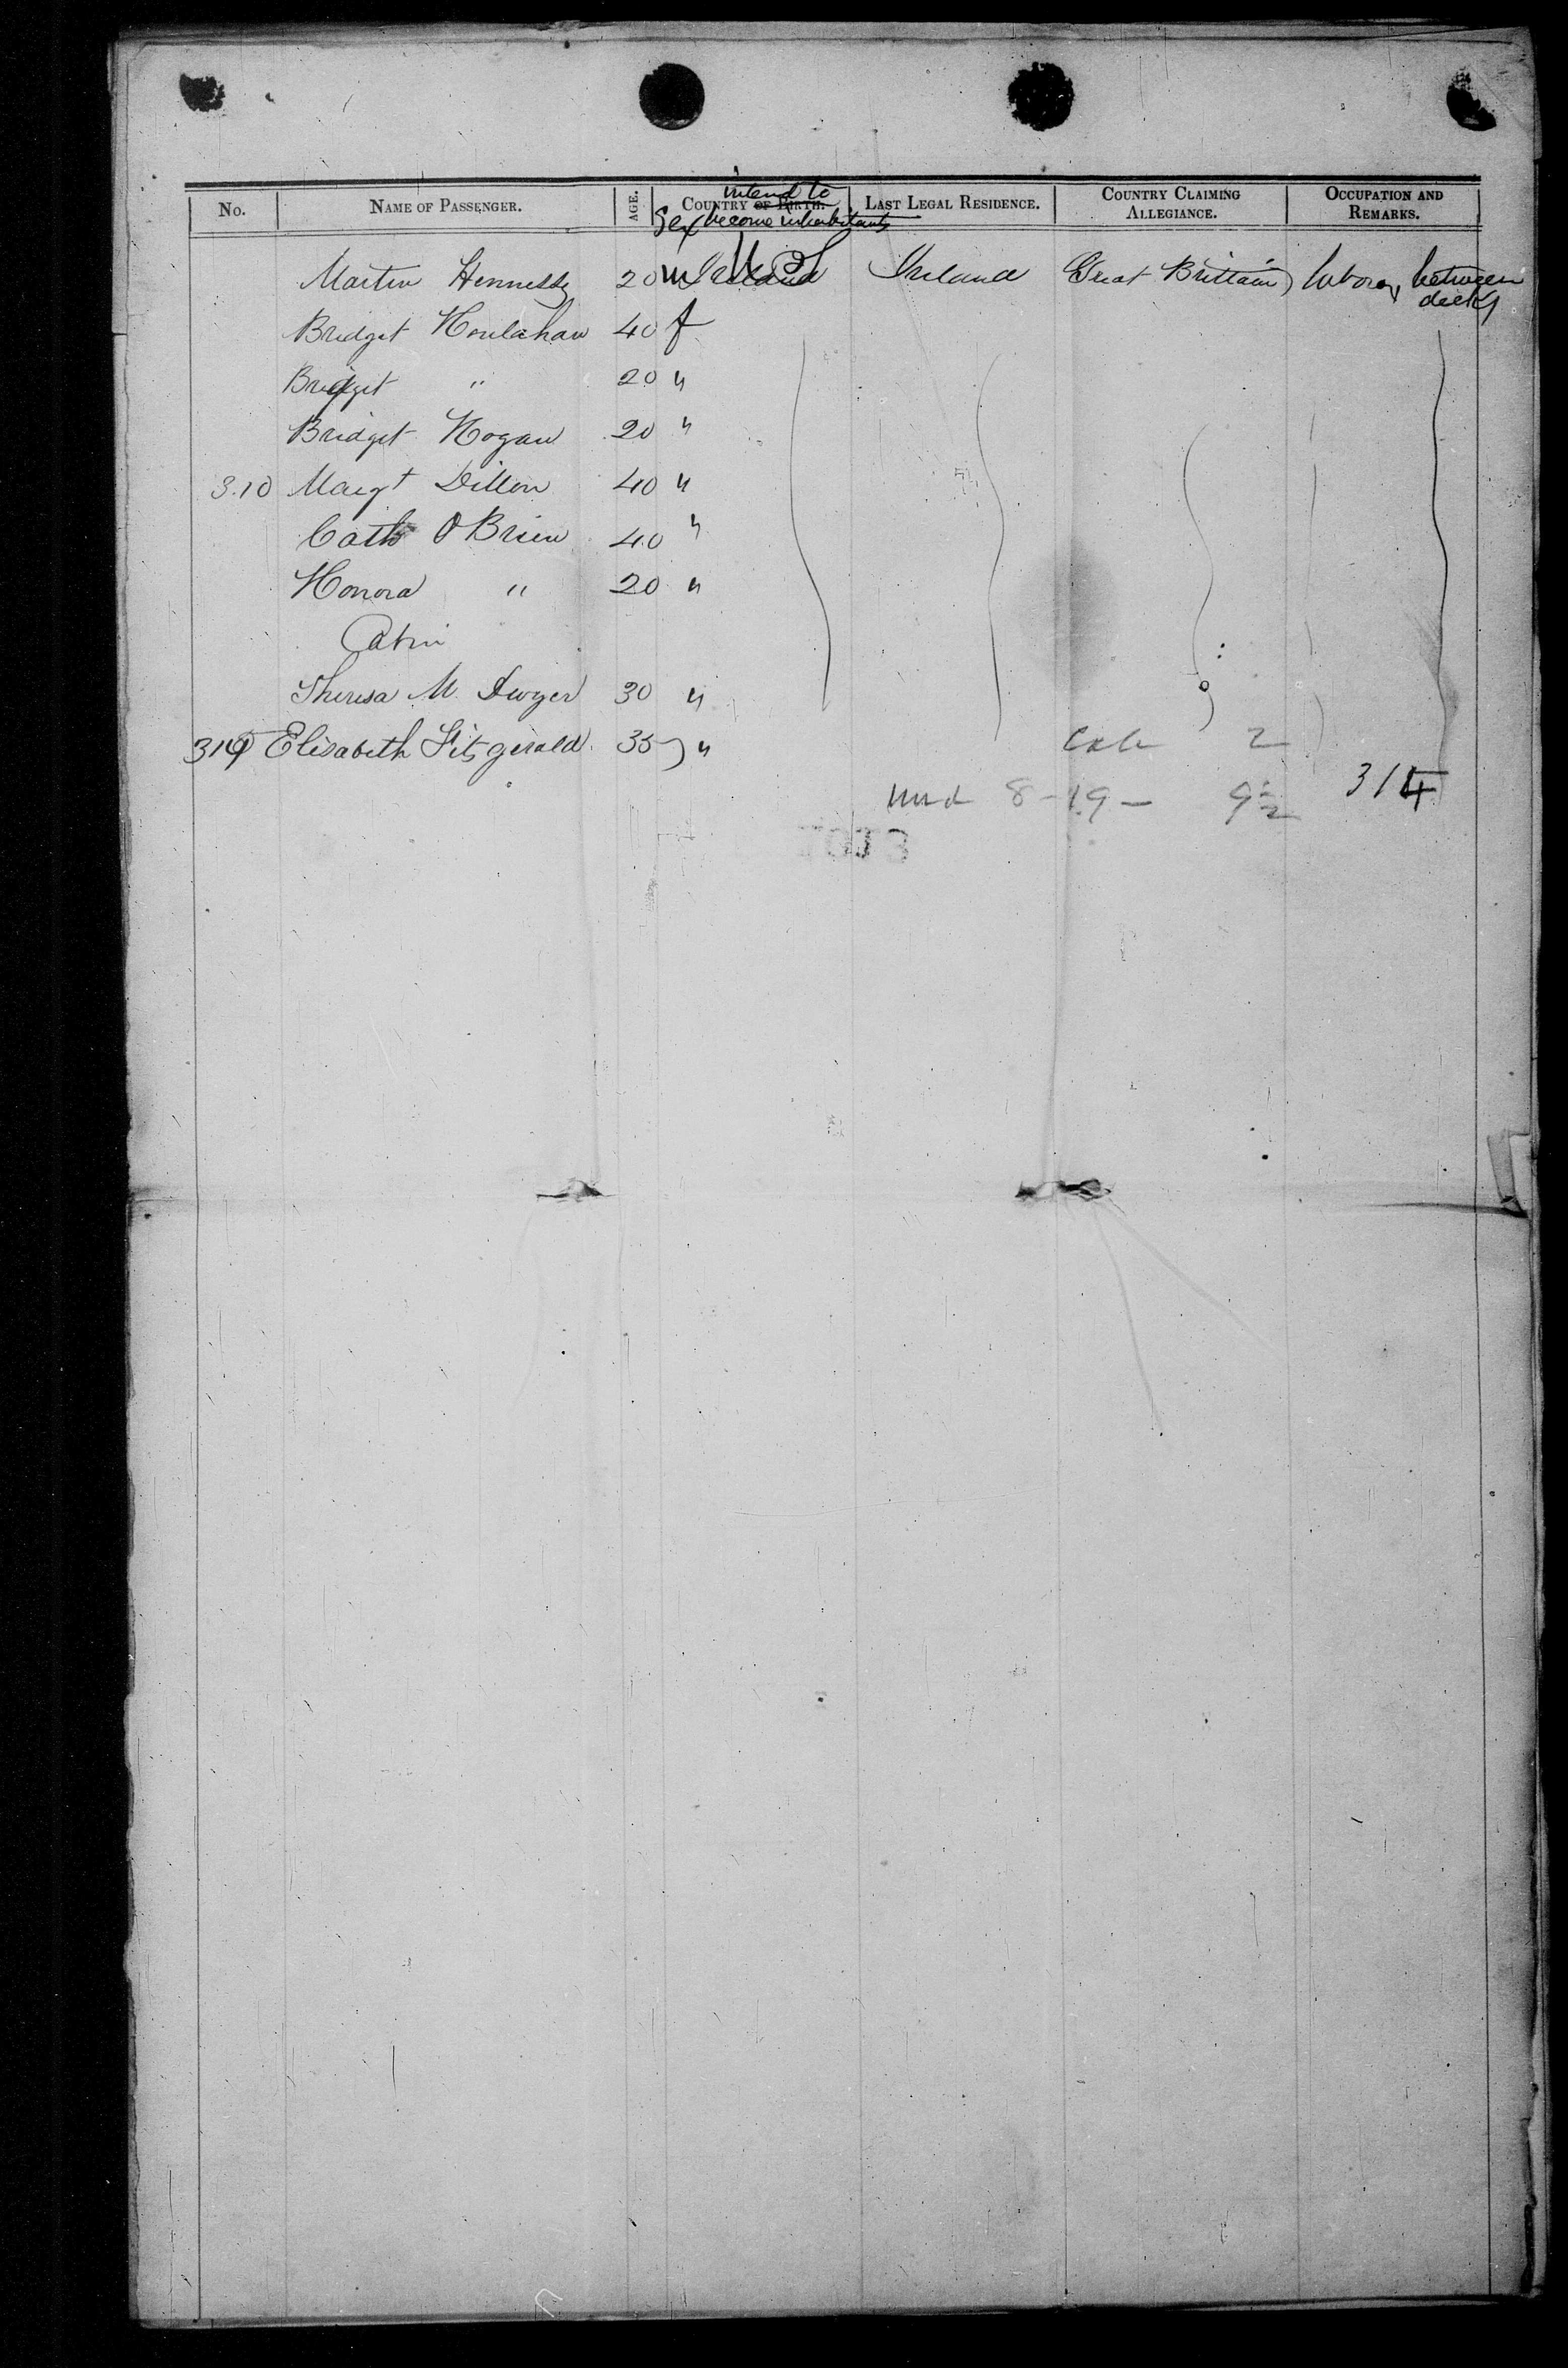 No. NAME OF PASSENGER. AGE. Sex COUNTRY OF BIRTH. intend to become inhabitants LAST LEGAL RESIDENCE. COUNTRY CLAIMING ALLEGIANCE. OCCUPATION AND REMARKS.
Martin Hennessy 20 m Ireland U S Ireland Great Brittain labora, between decks
Bridget Houlahan 40 f
Bridget " 20 "
Bridget Hogan 20 "
310 Margt Dillon 40 "
Cath O Brien 40 "
Honora " 20 "
Cabin
Theresa M. Dwyer 30 "
314 Elisabeth Fitzgerald 35 "
2
8-19- 9 314